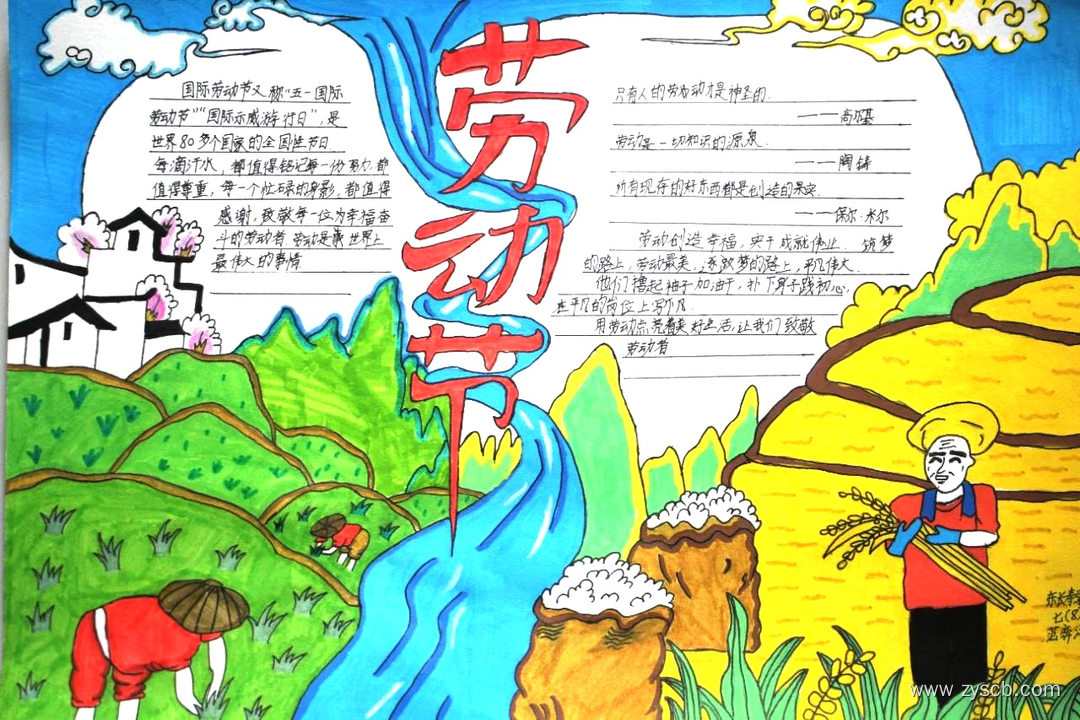 劳动节
国际劳动节又称“五一国际
劳动节”“国际示威游行日”,是
世界80多个国家的全国性节日
每滴汗水,都值得铭记每一份努力,都
值得尊重,每一个忙碌的身影,都值得
感谢,致敬每一位为幸福奋
斗的劳动者,劳动是世界上
最伟大的事情
只有人的劳动才是神圣的.
——高尔基
劳动是一切知识的源泉.
——陶铸
所有现存的好东西都是创造的果实
——保尔·米尔
劳动创造幸福,实干成就伟业. 筑梦
的路上,劳动最美,逐梦的路上,平凡伟大.
他们撸起袖子加油干,扑下身子践初心,
在平凡的岗位上写不凡.
用劳动点亮着美好生活,让我们致敬
劳动者
七(8)
www.zyscb.com